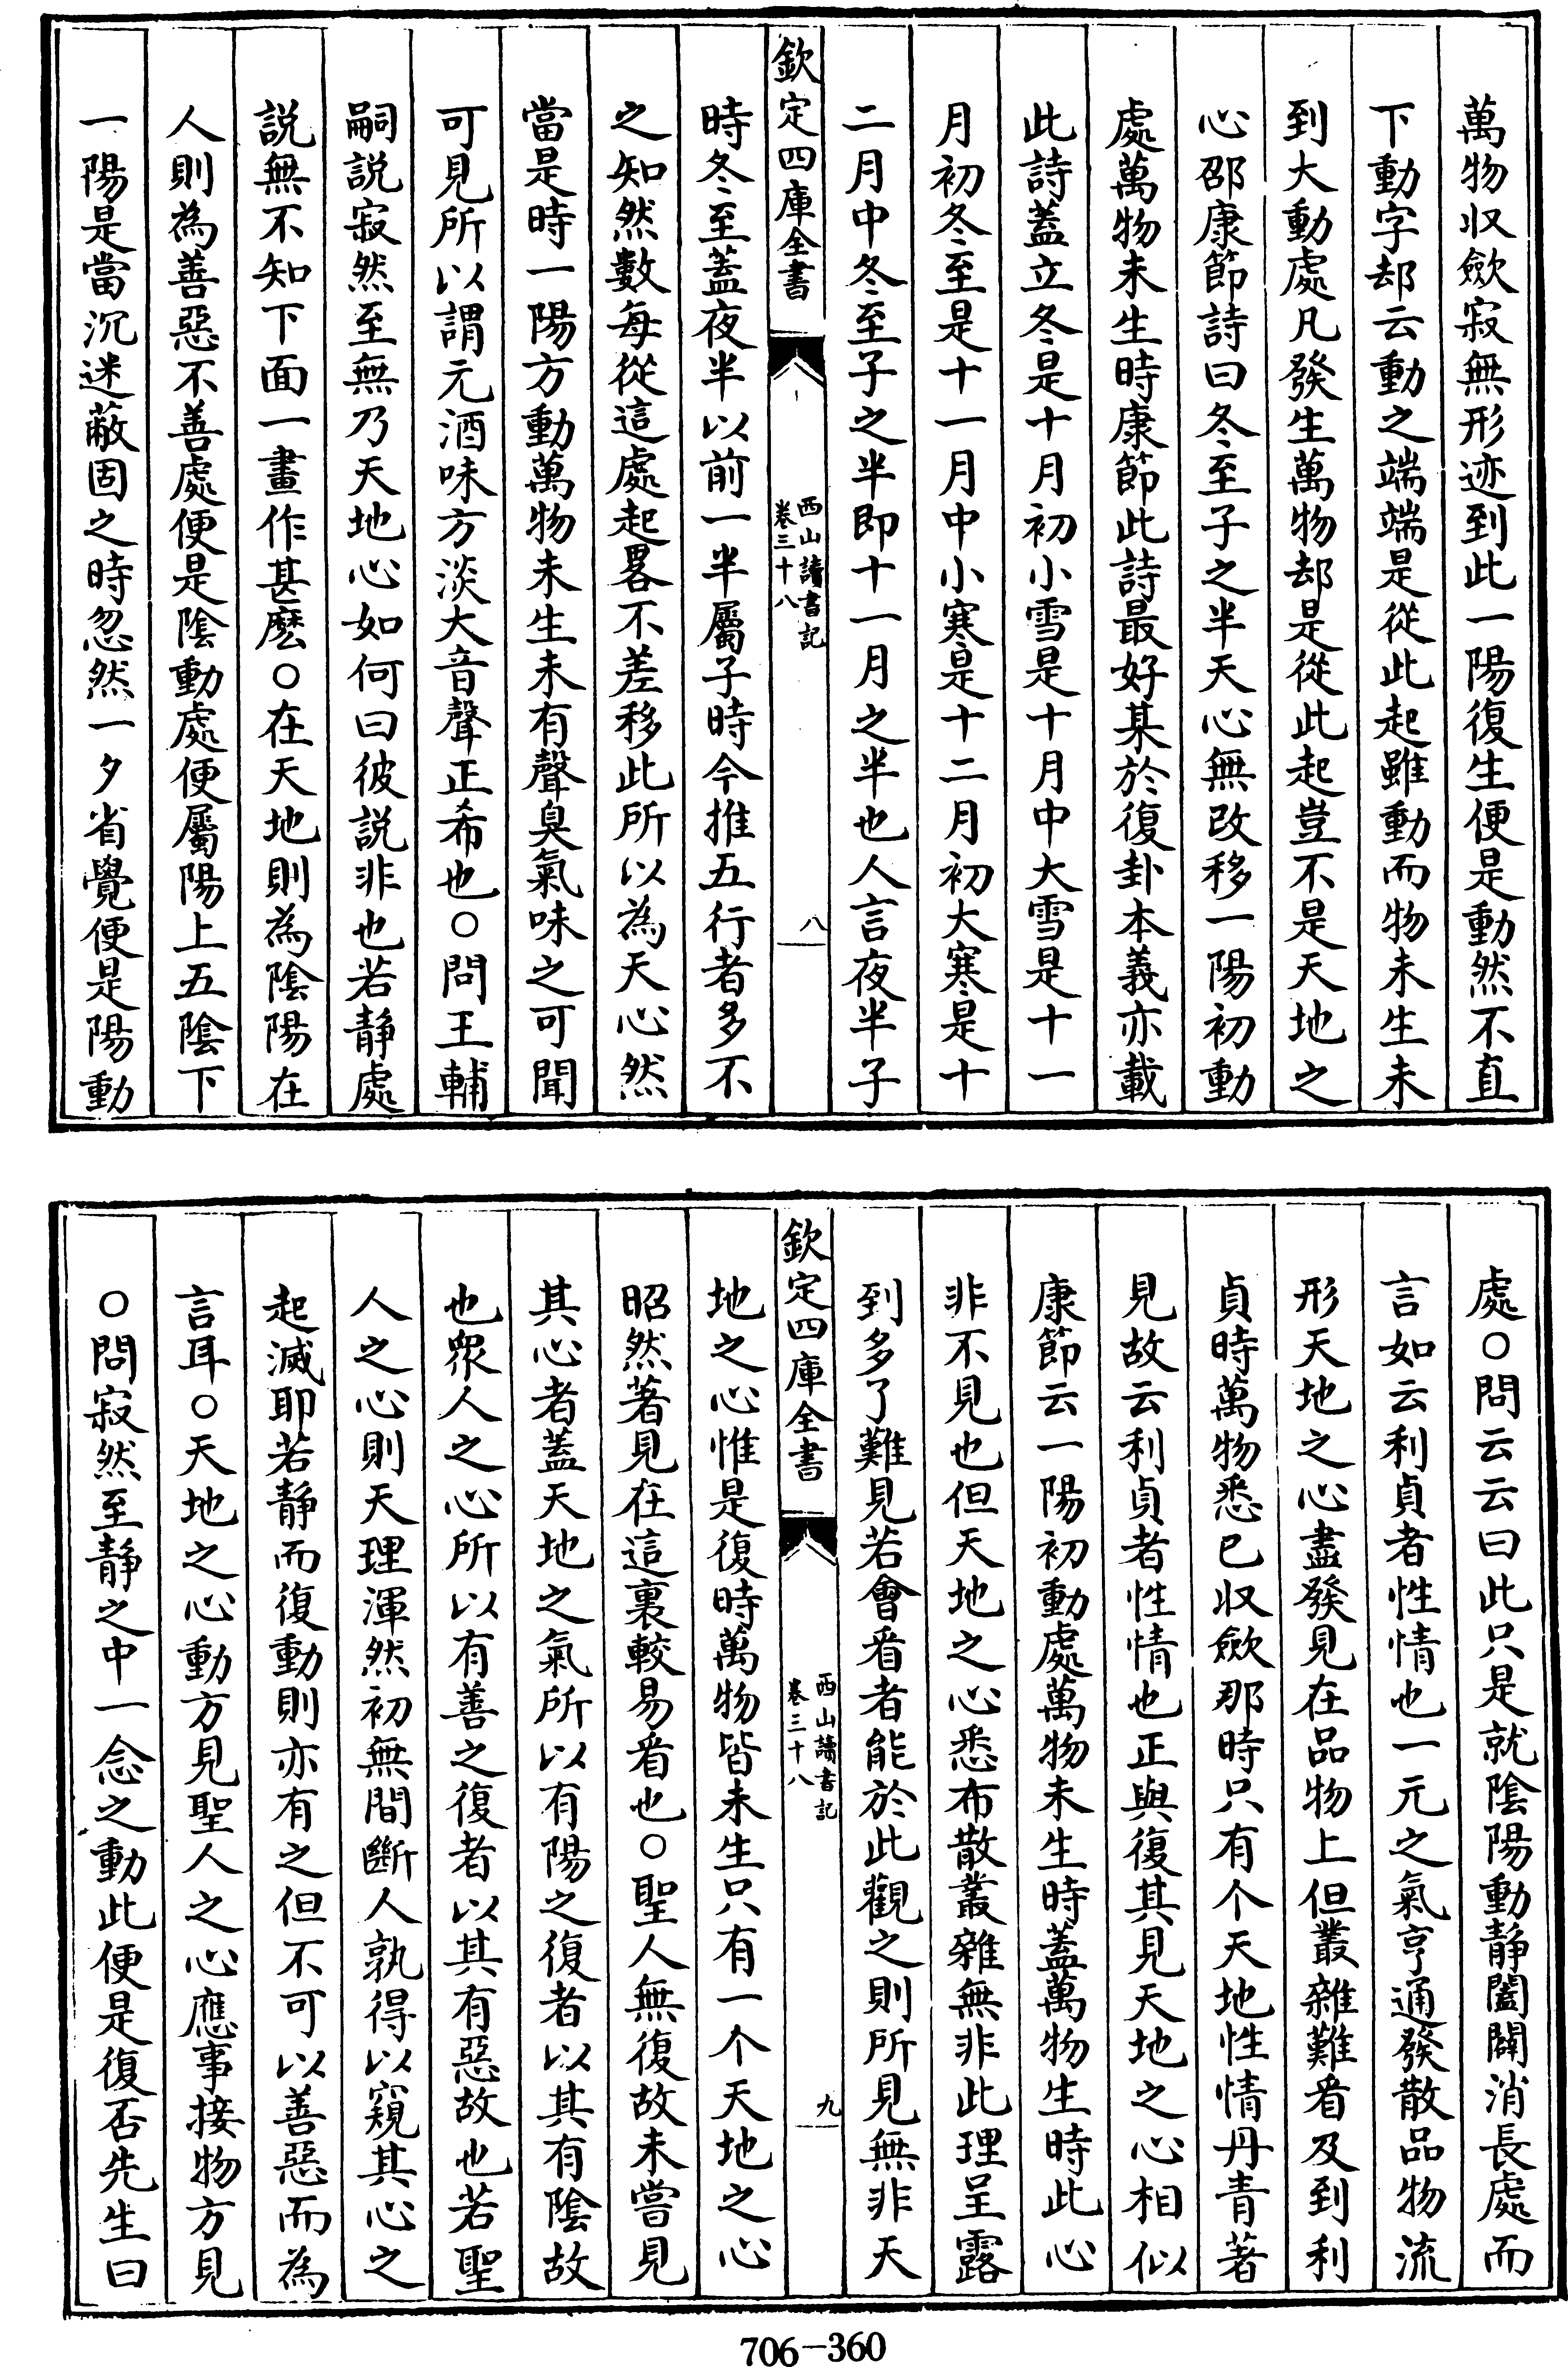 萬物収歛寂無形迹到此一陽復生便是動然不直
下動字却云動之端端是從此起雖動而物未生未
到大動處凡發生萬物却是從此起豈不是天地之
心邵康節詩曰冬至子之半天心無改移一陽初動
處萬物未生時康節此詩最好某於復卦本義亦載
此詩蓋立冬是十月初小雪是十月中大雪是十一
月初冬至是十一月中小寒是十二月初大寒是十
二月中冬至子之半即十一月之半也人言夜半子
欽定四庫全書
西山讀書記
卷三十八
八
時冬至蓋夜半以前一半屬子時今推五行者多不
之知然數每從這處起畧不差移此所以為天心然
當是時一陽方動萬物未生未有聲臭氣味之可聞
可見所以謂元酒味方淡大音聲正希也○問王輔
嗣説寂然至無乃天地心如何曰彼説非也若静處
説無不知下面一畫作甚麽○在天地則為陰陽在
人則為善惡不善處便是陰動處便屬陽上五陰下
一陽是當沉迷蔽固之時忽然一夕省覺便是陽動
處○問云云曰此只是就陰陽動静闔闢消長處而
言如云利貞者性情也一元之氣亨通發散品物流
形天地之心盡發見在品物上但叢雜難看及到利
貞時萬物悉已収歛那時只有个天地性情丹青著
見故云利貞者性情也正與復其見天地之心相似
康節云一陽初動處萬物未生時蓋萬物生時此心
非不見也但天地之心悉布散叢雜無非此理呈露
到多了難見若會看者能於此觀之則所見無非天
欽定四庫全書
西山讀書記
卷三十八
九
地之心惟是復時萬物皆未生只有一个天地之心
昭然著見在這裏較易看也○聖人無復故未嘗見
其心者蓋天地之氣所以有陽之復者以其有陰故
也衆人之心所以有善之復者以其有惡故也若聖
人之心則天理渾然初無間斷人孰得以窺其心之
起滅耶若静而復動則亦有之但不可以善惡而為
言耳○天地之心動方見聖人之心應事接物方見
○問寂然至静之中一念之動此便是復否先生曰
706-360